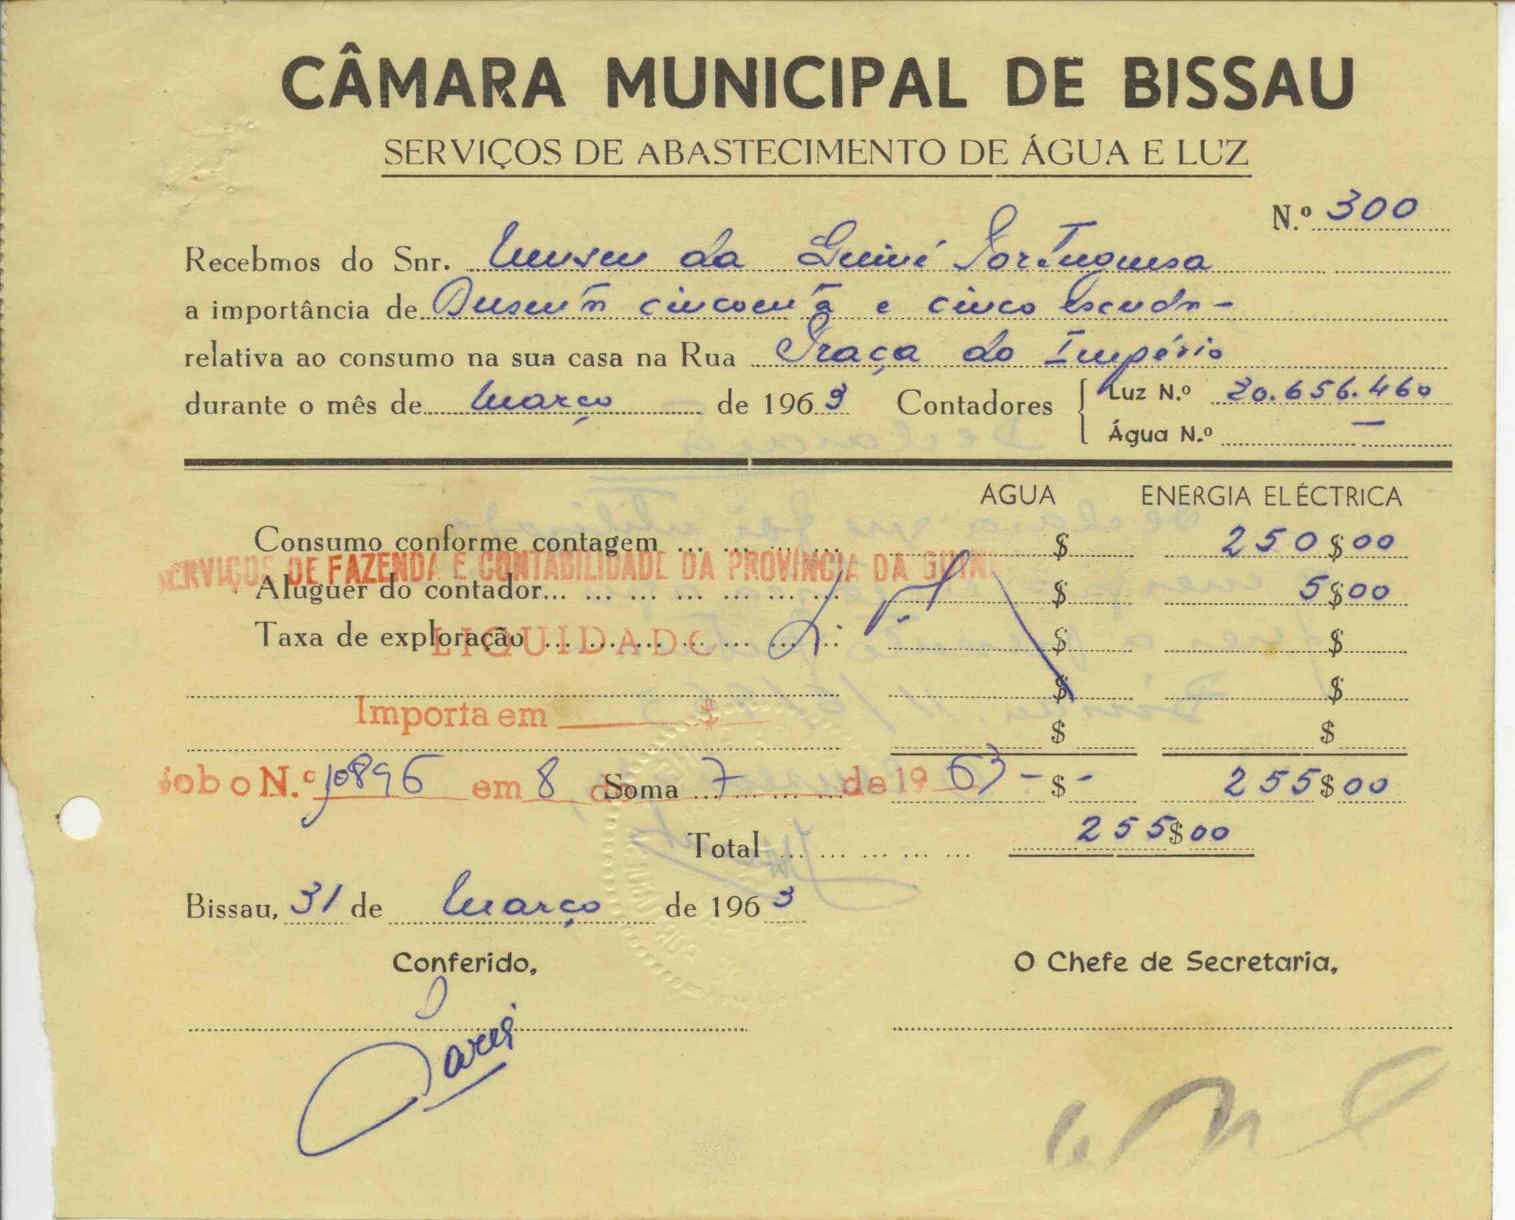 CÂMARA MUNICIPAL DE BISSAU
SERVIÇOS DE ABASTECIMENTO DE ÁGUA E LUZ
N.º 300
Recebmos do Snr. Museu da Guiné Portuguesa
a importância de Duzentos cincoenta e cinco escudos -
relativa ao consumo na sua casa na Rua Praça do Império
durante o mês de Março de 1963 Contadores Luz N.º 20.656.460
Água N.º —
AGUA ENERGIA ELÉCTRICA
Consumo conforme contagem ... ... ... ... $ 250$00
SERVIÇOS DE FAZENDA E CONTABILIDADE DA PROVÍNCIA DA GUINÉ
Aluguer do contador... ... ... ... ... ... ... $ 5$00
Taxa de exploração ... ... ... ... ... ... ... $ $
LIQUIDADO
$ $
Importa em $
$ $
N.º 10896 em 8 de 7 de 1963
Soma ... ... ... ... - $ - 255$00
Total ... ... ... ... ... 255$00
Bissau, 31 de Março de 1963
Conferido,
O Chefe de Secretaria,